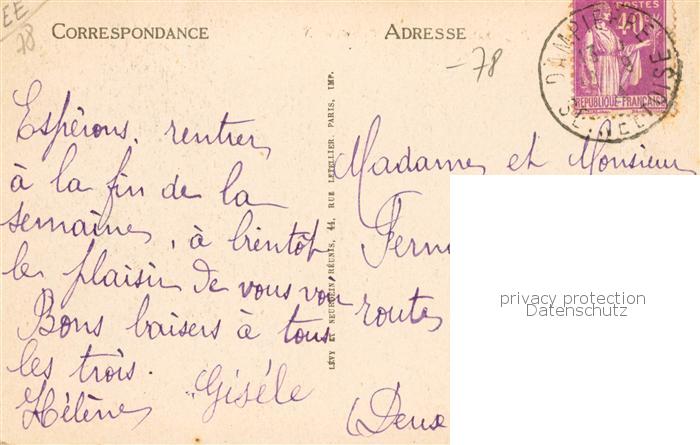 EE
78
CORRESPONDANCE
ADRESSE
-78
POSTES
40c
REPUBLIQUE FRANÇAISE
DAMPIERRE
SEINE ET OISE
Espérons, rentrer
à la fin de la
semaine, à bientôt
le plaisir de vous voir
Bons baisers à tous
les trois.
Gisèle
Hélène
LÉVY ET NEURDEIN RÉUNIS, 44, RUE LETELLIER, PARIS, IMP.
Madame et Monsieur
Fern
route
(Deux
privacy protection
Datenschutz